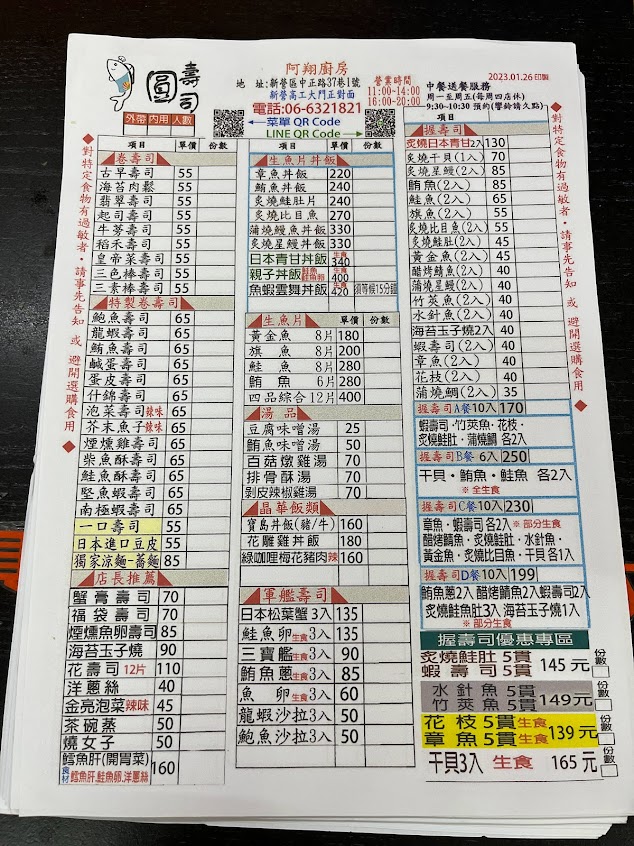 圓壽司
外帶 內用 人數
阿翔廚房
地 址:新營區中正路37巷1號
新營高工大門正對面
電話:06-6321821
菜單 QR Code
LINE QR Code
營業時間
11:00~14:00
16:00~20:00
2023.01.26印製
中餐送餐服務
周一至周五(每周四店休)
9:30-10:30 預約(響鈴請久點)
對特定食物有過敏者，請事先告知 或 避開選購食用
項目 單價 份數
卷壽司
古早壽司 55
海苔肉鬆 55
翡翠壽司 55
起司壽司 55
牛蒡壽司 55
稻禾壽司 55
皇帝菜壽司 55
三色棒壽司 55
三素棒壽司 55
特製卷壽司
鮑魚壽司 65
龍蝦壽司 65
鮪魚壽司 65
鹹蛋壽司 65
蛋皮壽司 65
什錦壽司 65
泡菜壽司辣味 65
芥末魚子辣味 65
煙燻雞壽司 65
柴魚酥壽司 65
鮭魚酥壽司 65
堅魚蝦壽司 65
南極蝦壽司 65
一口壽司 55
日本進口豆皮 55
獨家涼麵-蕎麵 85
店長推薦
蟹膏壽司 70
福袋壽司 70
煙燻魚卵壽司 85
海苔玉子燒 90
花壽司12片 110
洋蔥絲 40
金亮泡菜辣味 45
茶碗蒸 50
燒女子 50
鱈魚肝(開胃菜) 160
食材 鱈魚肝.鮭魚卵.洋蔥絲
項目 單價 份數
生魚片丼飯
章魚丼飯 220
鮪魚丼飯 240
炙燒鮭肚片 240
炙燒比目魚 270
蒲燒鰻魚丼飯 330
炙燒星鰻丼飯 330
日本青甘丼飯 生食 340
親子丼飯 鮭魚 鮭魚卵 生食 400
魚蝦雲舞丼飯 生食 420 須等候15分鐘
生魚片 單價 份數
黃金魚 8片 180
旗魚 8片 200
鮭魚 8片 280
鮪魚 6片 280
四品綜合12片 400
湯品
豆腐味噌湯 25
鮪魚味噌湯 50
百菇燉雞湯 70
排骨酥湯 70
剝皮辣椒雞湯 70
晶華飯類
寶島丼飯(豬/牛) 160
花雕雞丼飯 180
綠咖哩梅花豬肉辣 160
軍艦壽司
日本松葉蟹 3入 135
鮭魚卵生食3入 135
三寶艦生食3入 90
鮪魚蔥生食3入 85
魚卵生食3入 50
龍蝦沙拉3入 50
鮑魚沙拉3入 50
項目 單價 份數
握壽司
炙燒日本青甘2入 130
炙燒干貝(1入) 70
炙燒星鰻(2入) 85
鮪魚(2入) 85
鮭魚(2入) 65
旗魚(2入) 55
炙燒比目魚(2入) 55
炙燒鮭肚(2入) 45
黃金魚(2入) 45
醋烤鯖魚(2入) 40
蒲燒星鰻(2入) 40
竹莢魚(2入) 40
水針魚(2入) 40
海苔玉子燒2入 40
蝦壽司(2入) 40
章魚(2入) 40
花枝(2入) 40
蒲燒鯛(2入) 35
握壽司A餐 10入 170
蝦壽司·竹莢魚·花枝·
炙燒鮭肚·蒲燒鯛 各2入
握壽司B餐 6入 250
干貝·鮪魚·鮭魚 各2入
※全生食
握壽司C餐 10入 230
章魚·蝦壽司 各2入 ※部分生食
醋烤鯖魚·炙燒鮭肚·水針魚·
黃金魚·炙燒比目魚·干貝 各1入
握壽司D餐 10入 199
鮪魚蔥2入 醋烤鯖魚2入蝦壽司2入
炙燒鮭魚肚3入 海苔玉子燒1入
※部分生食
握壽司優惠專區
炙燒鮭肚 5貫
蝦壽司 5貫 145元 份數
水針魚 5貫
竹莢魚 5貫 149元 份數
花枝 5貫生食
章魚 5貫生食 139元 份數
干貝3入 生食 165元 份數